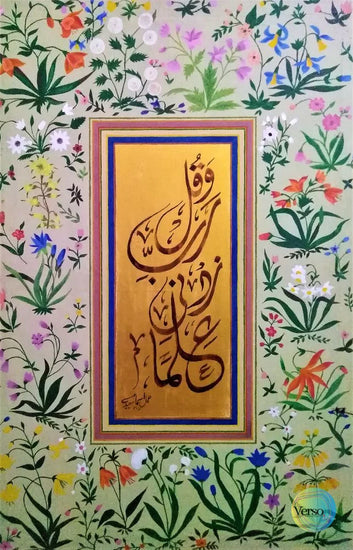 وَقُل
رَبِّ
زِدْنِي
عِلْمًا
Verso